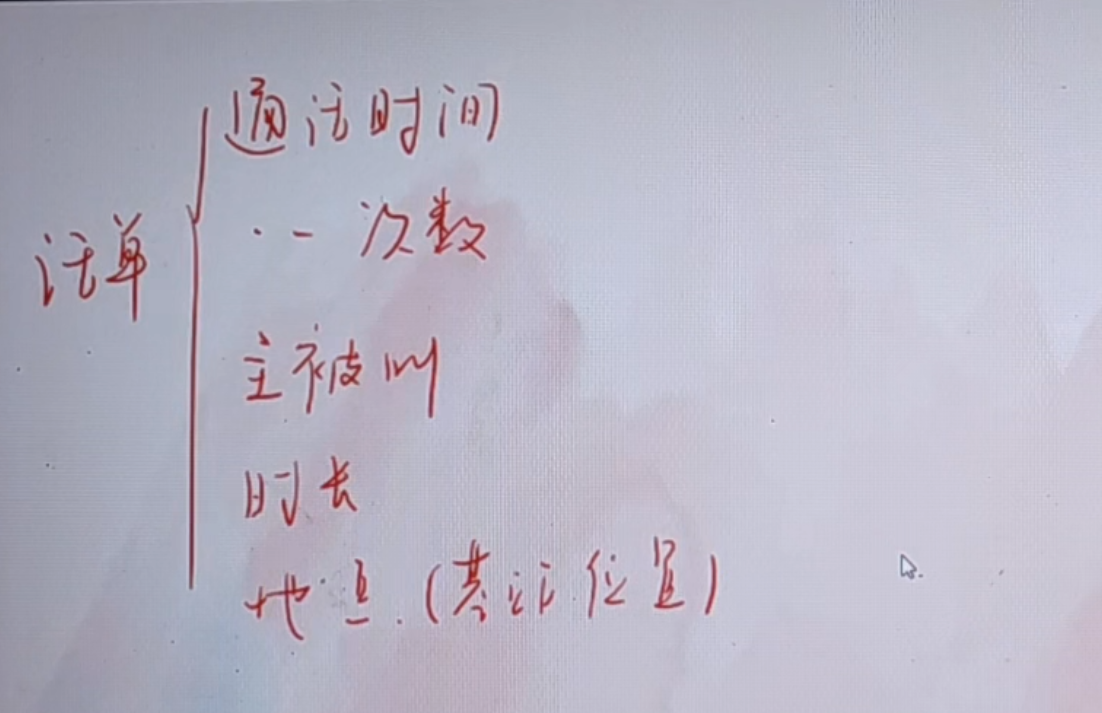 话单
通话时间
·· 次数
主被叫
时长
地点.(基站位置)